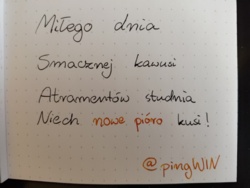 Miłego dnia
Smacznej kawusi
Atramentów studnia
Niech nowe pióro kusi!
@pingWIN